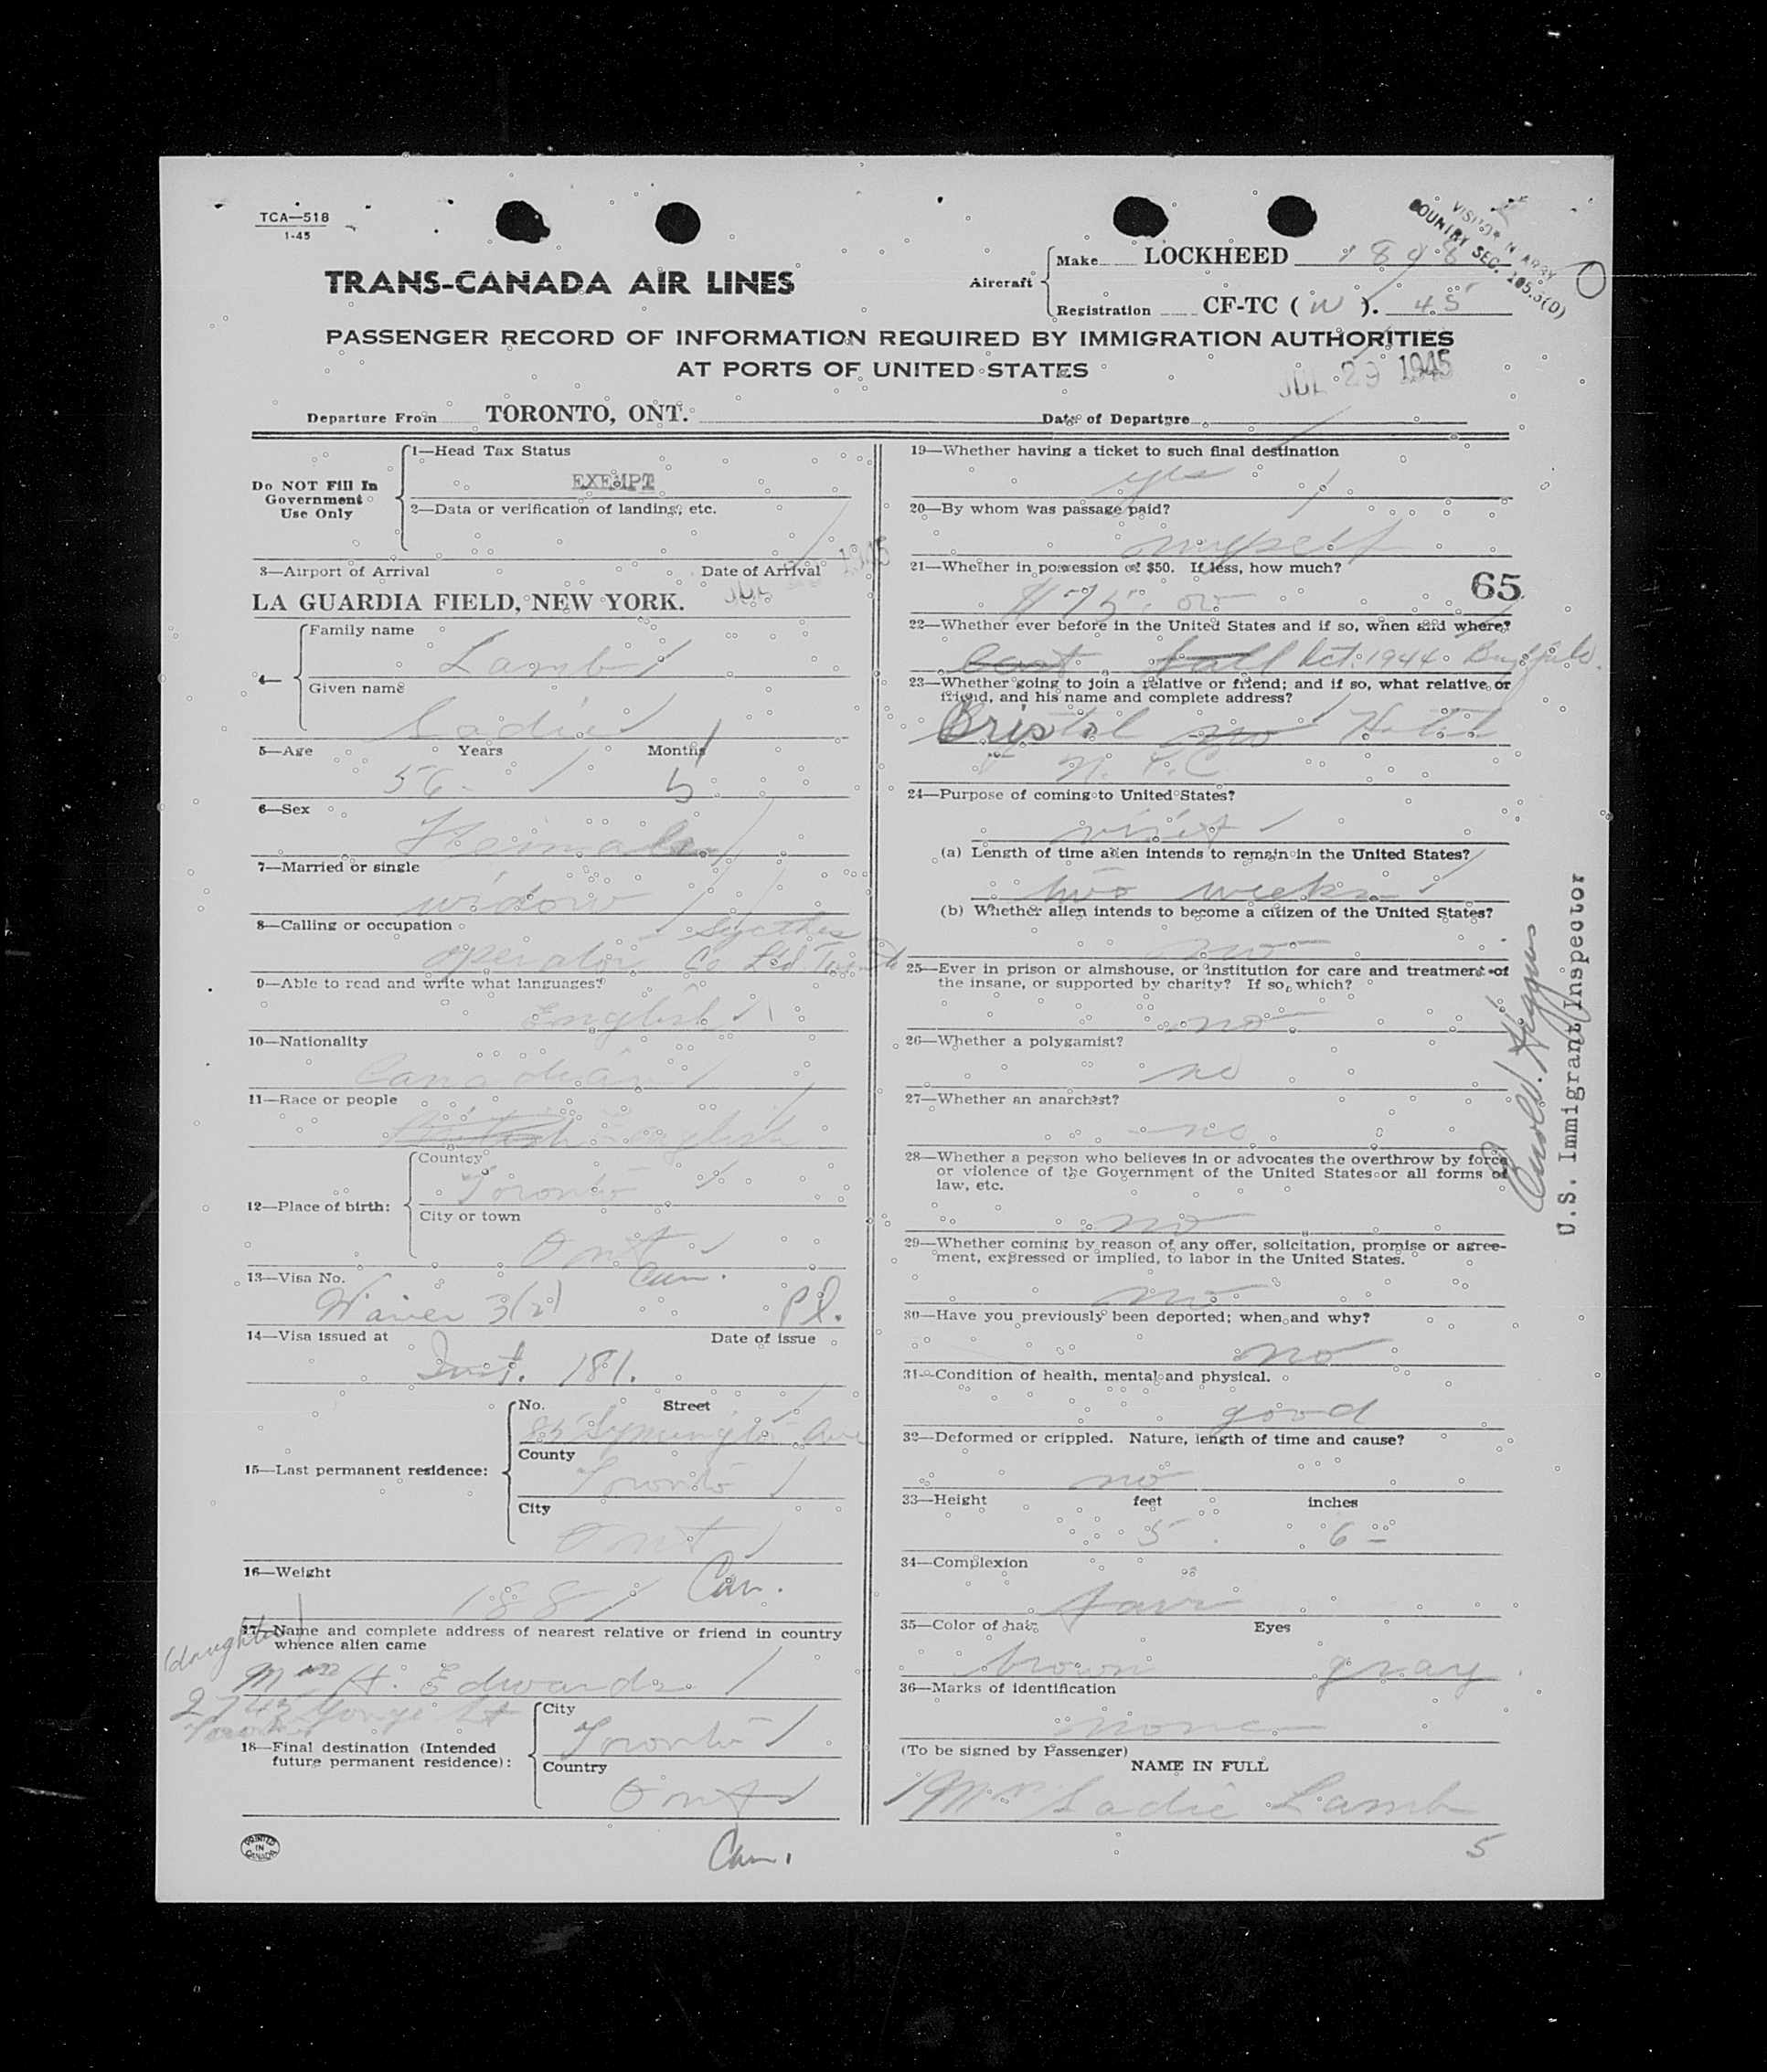 TCA—518
1-45
VISITOR N
COUNTRY SEC.
TRANS-CANADA AIR LINES
Aircraft
Make LOCKHEED
Registration CF-TC ( W ). 45
PASSENGER RECORD OF INFORMATION REQUIRED BY IMMIGRATION AUTHORITIES
AT PORTS OF UNITED STATES
JUL 29 1945
Departure From TORONTO, ONT. Date of Departure
Do NOT Fill In
Government
Use Only
1—Head Tax Status
EXEMPT
2—Data or verification of landing, etc.
3—Airport of Arrival Date of Arrival
JUL 1945
LA GUARDIA FIELD, NEW YORK.
4—
Family name
Lamb
Given name
Sadie
5—Age Years Months
56 5
6—Sex
Female
7—Married or single
widow
8—Calling or occupation
operator Co Ltd
9—Able to read and write what languages?
English
10—Nationality
Canadian
11—Race or people
British English
12—Place of birth:
Country
Toronto
City or town
Ont
Can.
13—Visa No.
Waiver 3(2) Pl.
14—Visa issued at Date of issue
Inst. 181.
15—Last permanent residence:
No. Street
Symington Ave
County
Toronto
City
Ont
16—Weight
188 Can.
(daughter)
17—Name and complete address of nearest relative or friend in country
whence alien came
Mrs H. Edwards
2743 Yonge St
Toronto
18—Final destination (Intended
future permanent residence):
City
Toronto
Country
Ont
Can.
PRINTED
IN
CANADA
19—Whether having a ticket to such final destination
yes
20—By whom was passage paid?
myself
21—Whether in possession of $50. If less, how much?
65
$75.00
22—Whether ever before in the United States and if so, when and where?
last fall Oct. 1944
23—Whether going to join a relative or friend; and if so, what relative or
friend, and his name and complete address?
Bristol no Hotel
N.Y.C.
24—Purpose of coming to United States?
visit
(a) Length of time alien intends to remain in the United States?
two weeks
(b) Whether alien intends to become a citizen of the United States?
no
25—Ever in prison or almshouse, or institution for care and treatment of
the insane, or supported by charity? If so, which?
no
26—Whether a polygamist?
no
27—Whether an anarchist?
no
28—Whether a person who believes in or advocates the overthrow by force
or violence of the Government of the United States or all forms of
law, etc.
no
29—Whether coming by reason of any offer, solicitation, promise or agree-
ment, expressed or implied, to labor in the United States.
no
30—Have you previously been deported; when and why?
no
31—Condition of health, mental and physical.
good
32—Deformed or crippled. Nature, length of time and cause?
no
33—Height feet inches
5 6
34—Complexion
fair
35—Color of hair Eyes
brown gray
36—Marks of identification
none
(To be signed by Passenger)
NAME IN FULL
Mrs Sadie Lamb
5
U.S. Immigrant Inspector